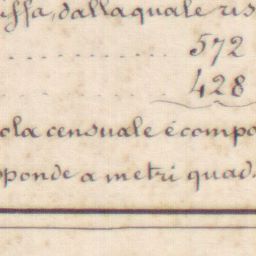 issa, dalla quale ris
572
428
ola censuale è compo
ponde a metri quad.